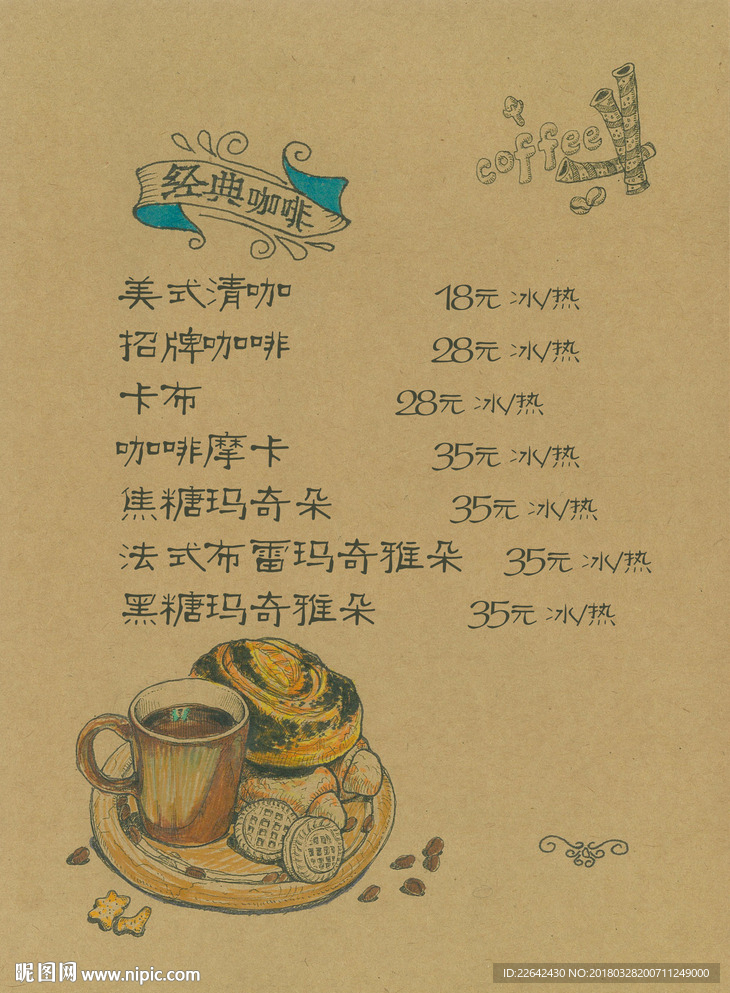 coffee
经典咖啡
美式清咖 18元 冰/热
招牌咖啡 28元 冰/热
卡布 28元 冰/热
咖啡摩卡 35元 冰/热
焦糖玛奇朵 35元 冰/热
法式布雷玛奇雅朵 35元 冰/热
黑糖玛奇雅朵 35元 冰/热
昵图网 www.nipic.com
ID:22642430 NO:20180328200711249000